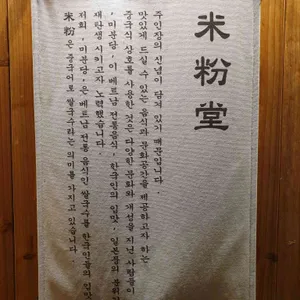 米粉堂
米粉은 중국어로 쌀국수라는 의미를 가지고 있습니다.
저희 ,미분당,은 베트남 전통 음식인 쌀국수를 한국인들의 입맛
재탄생 시키고자 노력했습니다.
,미분당, 이 베트남 전통음식, 한국인의 입맛, 일본풍의
중국식 상호를 사용한 것은 다양한 문화와 개성을 지닌 사람들이
맛있게 드실 수 있는 음식과 문화공간을 제공하고자 하는
주인장의 신념이 담겨 있기 때문입니다.